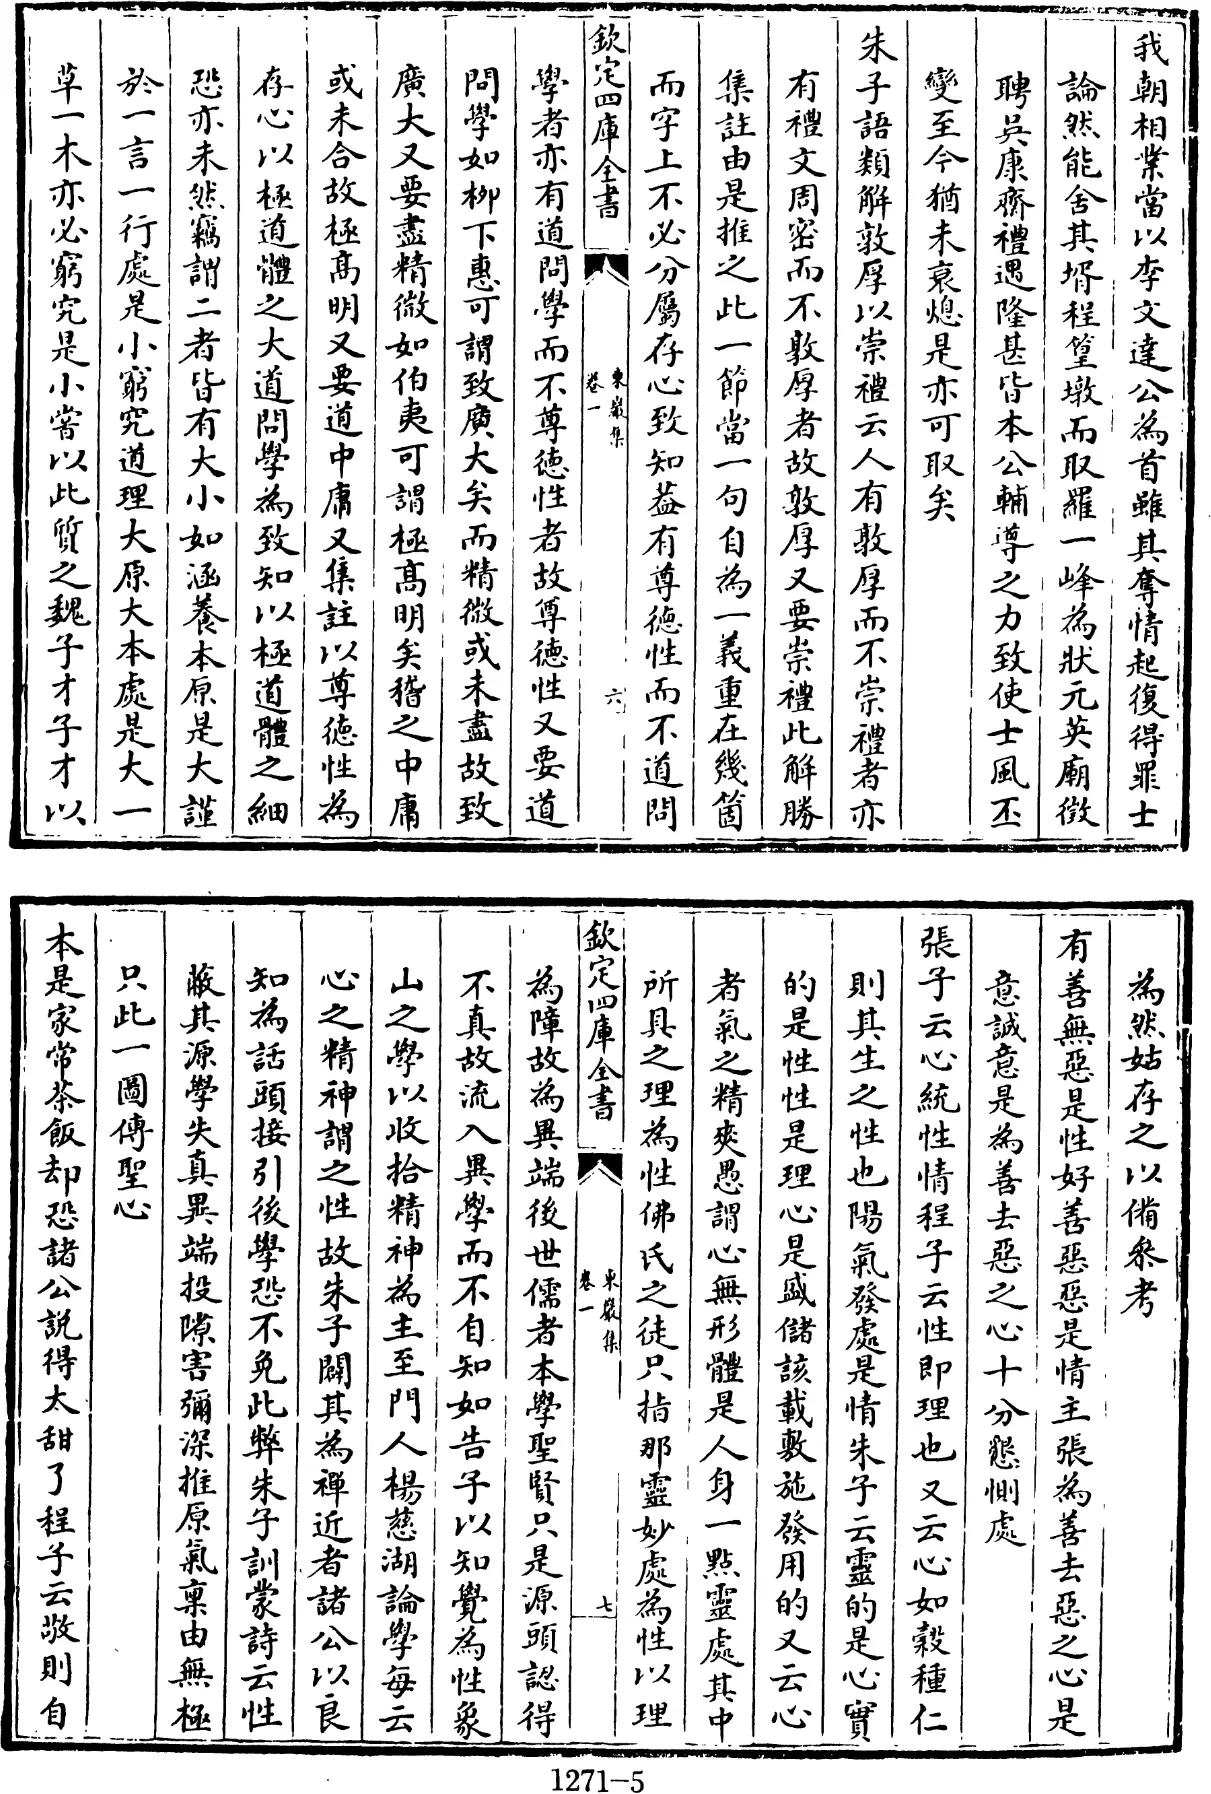 我朝相業當以李文達公為首雖其奪情起復得罪士
論然能舍其壻程篁墩而取羅一峰為狀元英廟徵
聘吳康齋禮遇隆甚皆本公輔導之力致使士風丕
變至今猶未衰熄是亦可取矣
朱子語類解敦厚以崇禮云人有敦厚而不崇禮者亦
有禮文周密而不敦厚者故敦厚又要崇禮此解勝
集註由是推之此一節當一句自為一義重在幾箇
而字上不必分屬存心致知葢有尊德性而不道問
欽定四庫全書
東巖集
卷一
六
學者亦有道問學而不尊德性者故尊德性又要道
問學如柳下惠可謂致廣大矣而精微或未盡故致
廣大又要盡精微如伯夷可謂極高明矣稽之中庸
或未合故極高明又要道中庸又集註以尊德性為
存心以極道體之大道問學為致知以極道體之細
恐亦未然竊謂二者皆有大小如涵養本原是大謹
於一言一行處是小窮究道理大原大本處是大一
草一木亦必窮究是小嘗以此質之魏子才子才以
為然姑存之以備叅考
有善無惡是性好善惡惡是情主張為善去惡之心是
意誠意是為善去惡之心十分懇惻處
張子云心統性情程子云性即理也又云心如穀種仁
則其生之性也陽氣發處是情朱子云靈的是心實
的是性性是理心是盛儲該載敷施發用的又云心
者氣之精爽愚謂心無形體是人身一點靈處其中
所具之理為性佛氏之徒只指那靈妙處為性以理
欽定四庫全書
東巖集
卷一
七
為障故為異端後世儒者本學聖賢只是源頭認得
不真故流入異學而不自知如告子以知覺為性象
山之學以收拾精神為主至門人楊慈湖論學每云
心之精神謂之性故朱子闢其為禪近者諸公以良
知為話頭接引後學恐不免此弊朱子訓蒙詩云性
蔽其源學失真異端投隙害彌深推原氣稟由無極
只此一圖傳聖心
本是家常茶飯却恐諸公説得太甜了程子云敬則自
1271-5